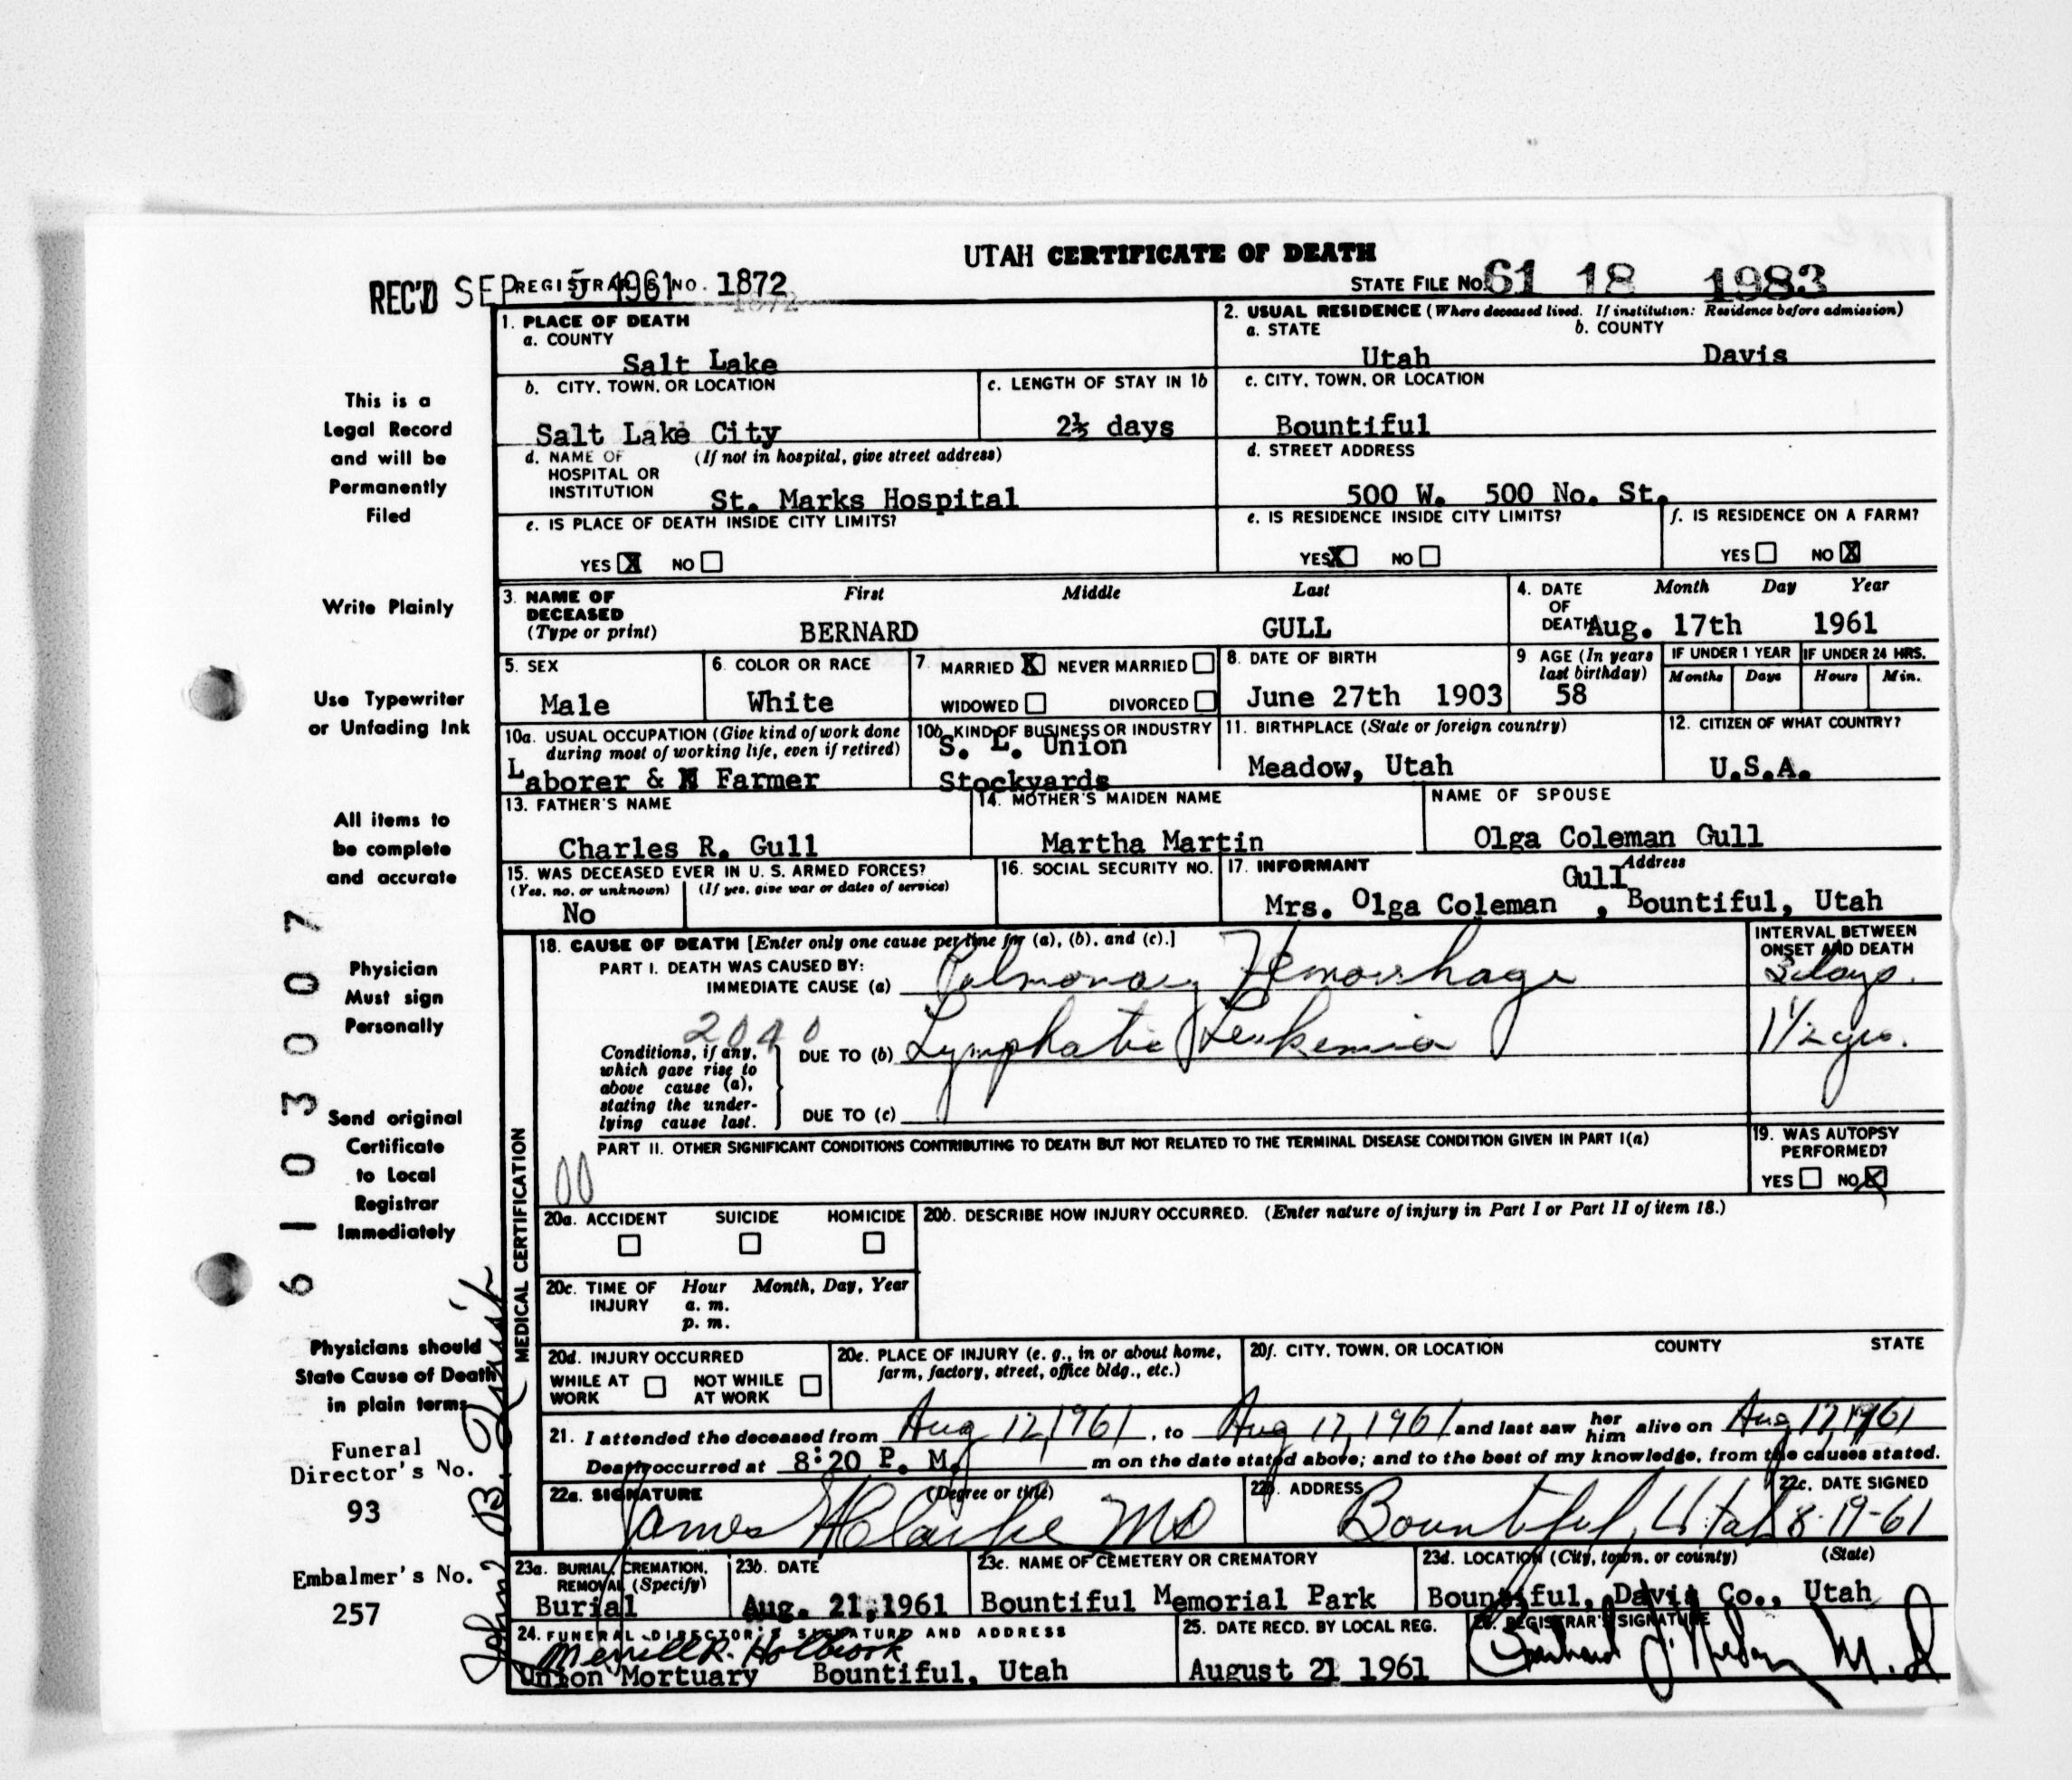 UTAH CERTIFICATE OF DEATH
REC'D SEP 5 1961 REGISTRAR'S NO. 1872
1872
STATE FILE No. 61 18 1983
1. PLACE OF DEATH
a. COUNTY
Salt Lake
2. USUAL RESIDENCE (Where deceased lived. If institution: Residence before admission)
a. STATE b. COUNTY
Utah Davis
b. CITY, TOWN, OR LOCATION
Salt Lake City
c. LENGTH OF STAY IN 1b
2½ days
c. CITY, TOWN, OR LOCATION
Bountiful
d. NAME OF (If not in hospital, give street address)
HOSPITAL OR
INSTITUTION St. Marks Hospital
d. STREET ADDRESS
500 W. 500 No. St.
e. IS PLACE OF DEATH INSIDE CITY LIMITS?
YES X NO
e. IS RESIDENCE INSIDE CITY LIMITS?
YES X NO
f. IS RESIDENCE ON A FARM?
YES NO X
3. NAME OF DECEASED
(Type or print)
First Middle Last
BERNARD GULL
4. DATE OF DEATH
Month Day Year
Aug. 17th 1961
5. SEX
Male
6. COLOR OR RACE
White
7. MARRIED X NEVER MARRIED
WIDOWED DIVORCED
8. DATE OF BIRTH
June 27th 1903
9 AGE (In years
last birthday)
58
IF UNDER 1 YEAR
Months Days
IF UNDER 24 HRS.
Hours Min.
10a. USUAL OCCUPATION (Give kind of work done
during most of working life, even if retired)
Laborer & Farmer
10b. KIND OF BUSINESS OR INDUSTRY
S. L. Union
Stockyards
11. BIRTHPLACE (State or foreign country)
Meadow, Utah
12. CITIZEN OF WHAT COUNTRY?
U.S.A.
13. FATHER'S NAME
Charles R. Gull
14. MOTHER'S MAIDEN NAME
Martha Martin
NAME OF SPOUSE
Olga Coleman Gull
15. WAS DECEASED EVER IN U. S. ARMED FORCES?
(Yes, no, or unknown) (If yes, give war or dates of service)
No
16. SOCIAL SECURITY NO.
17. INFORMANT Address
Gull
Mrs. Olga Coleman , Bountiful, Utah
MEDICAL CERTIFICATION
18. CAUSE OF DEATH [Enter only one cause per line for (a), (b), and (c).]
PART I. DEATH WAS CAUSED BY:
IMMEDIATE CAUSE (a) Pulmonary Hemorrhage
INTERVAL BETWEEN
ONSET AND DEATH
3 days.
2040
Conditions, if any,
which gave rise to
above cause (a),
stating the under-
lying cause last.
DUE TO (b) Lymphatic Leukemia
1 1/2 yrs.
DUE TO (c)
PART II. OTHER SIGNIFICANT CONDITIONS CONTRIBUTING TO DEATH BUT NOT RELATED TO THE TERMINAL DISEASE CONDITION GIVEN IN PART I(a)
00
19. WAS AUTOPSY
PERFORMED?
YES NO X
20a. ACCIDENT SUICIDE HOMICIDE
20b. DESCRIBE HOW INJURY OCCURRED. (Enter nature of injury in Part I or Part II of item 18.)
20c. TIME OF Hour Month, Day, Year
INJURY a. m.
p. m.
20d. INJURY OCCURRED
WHILE AT NOT WHILE
WORK AT WORK
20e. PLACE OF INJURY (e. g., in or about home,
farm, factory, street, office bldg., etc.)
20f. CITY, TOWN, OR LOCATION COUNTY STATE
21. I attended the deceased from Aug 12, 1961, to Aug 17, 1961 and last saw her him alive on Aug 17, 1961
Death occurred at 8:20 P. M. m on the date stated above; and to the best of my knowledge, from the causes stated.
22a. SIGNATURE (Degree or title)
James H Clarke MD
22b. ADDRESS
Bountiful, Utah
22c. DATE SIGNED
8-19-61
23a. BURIAL, CREMATION,
REMOVAL (Specify)
Burial
23b. DATE
Aug. 21, 1961
23c. NAME OF CEMETERY OR CREMATORY
Bountiful Memorial Park
23d. LOCATION (City, town, or county) (State)
Bountiful, Davis Co., Utah
24. FUNERAL DIRECTOR'S SIGNATURE AND ADDRESS
Merrill R. Holbrook
Union Mortuary Bountiful, Utah
25. DATE RECD. BY LOCAL REG.
August 21 1961
26. REGISTRAR'S SIGNATURE
M.D
This is a
Legal Record
and will be
Permanently
Filed
Write Plainly
Use Typewriter
or Unfading Ink
All items to
be complete
and accurate
Physician
Must sign
Personally
Send original
Certificate
to Local
Registrar
Immediately
Physicians should
State Cause of Death
in plain terms
Funeral
Director's No.
93
Embalmer's No.
257
John B.
6103007